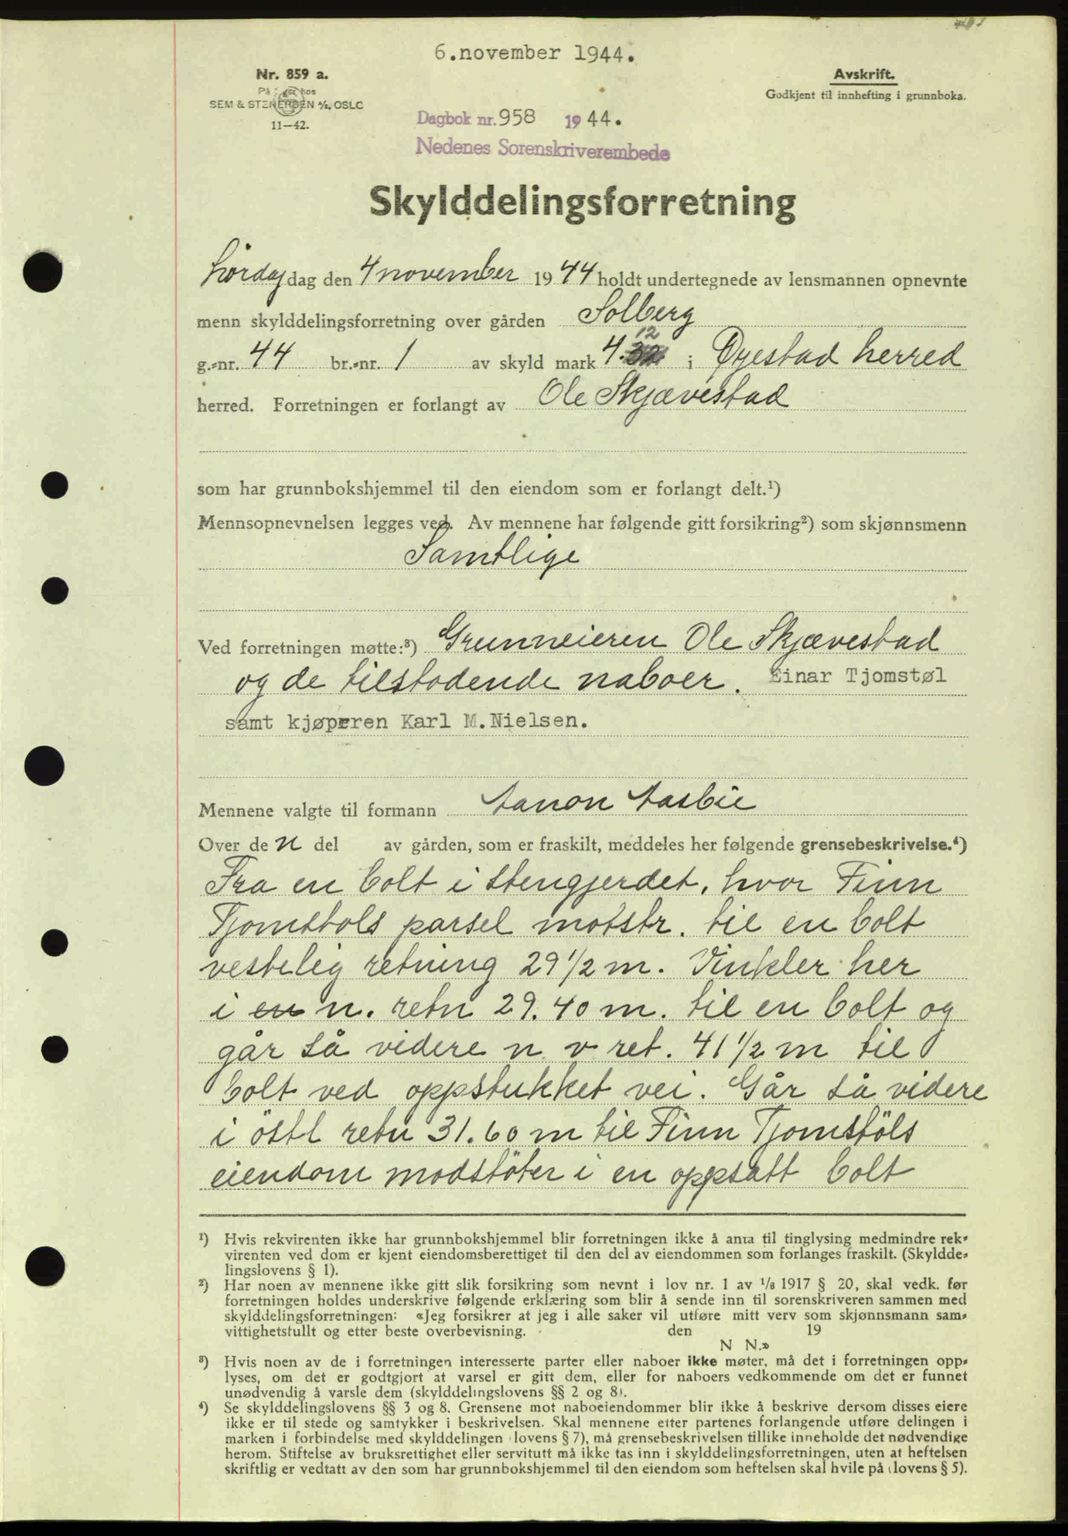 6.november 1944.
Nr. 859 a.
SEM & STENERSEN A/S, OSLO
11-42.
Avskrift.
Godkjent til innhefting i grunnboka.
Dagbok nr. 958 1944.
Nedenes Sorenskriverembede
Skylddelingsforretning
Lördag dag den 4 november 1944 holdt undertegnede av lensmannen opnevnte
menn skylddelingsforretning over gården Solberg
12
g.-nr. 44 br.-nr. 1 av skyld mark 4. i Øyestad herred
herred. Forretningen er forlangt av Ole Skjævestad
som har grunnbokshjemmel til den eiendom som er forlangt delt.¹)
Mennsopnevnelsen legges ved. Av mennene har følgende gitt forsikring²) som skjønnsmenn
Samtlige
Ved forretningen møtte:³) Grunneieren Ole Skjævestad
og de tilstødende naboer. Einar Tjomstøl
samt kjøperen Karl M.Nielsen.
Mennene valgte til formann Aanon Aasbie
Over de n del av gården, som er fraskilt, meddeles her følgende grensebeskrivelse.⁴)
Fra en bolt i stengjerdet, hvor Finn
Tjomstøls parsel motstr. til en bolt
vestelig retning 29 1/2 m. Vinkler her
i en n. retn 29.40 m. til en bolt og
går så videre n v ret. 41 1/2 m til
bolt ved oppstukket vei. Går så videre
i östl retn 31.60 m til Finn Tjomstöls
eiendom modstöter i en oppsatt bolt
¹) Hvis rekvirenten ikke har grunnbokshjemmel blir forretningen ikke å anta til tinglysing medmindre rek-
virenten ved dom er kjent eiendomsberettiget til den del av eiendommen som forlanges fraskilt. (Skyldde-
lingslovens § 1).
²) Har noen av mennene ikke gitt slik forsikring som nevnt i lov nr. 1 av 1/8 1917 § 20, skal vedk. før
forretningen holdes underskrive følgende erklæring som blir å sende inn til sorenskriveren sammen med
skylddelingsforretningen: «Jeg forsikrer at jeg i alle saker vil utføre mitt verv som skjønnsmann sam-
vittighetsfullt og etter beste overbevisning. den 19
N N.»
³) Hvis noen av de i forretningen interesserte parter eller naboer ikke møter, må det i forretningen opp-
lyses, om det er godtgjort at varsel er gitt dem, eller for naboers vedkommende om det er funnet
unødvendig å varsle dem (skylddelingslovens §§ 2 og 8).
⁴) Se skylddelingslovens §§ 3 og 8. Grensene mot naboeiendommer blir ikke å beskrive dersom disses eiere
ikke er til stede og samtykker i beskrivelsen. Skal mennene etter partenes forlangende utføre delingen i
marken i forbindelse med skylddelingen (lovens § 7), må grensebeskrivelsen tillike inneholde det nødvendige
herom. Stiftelse av bruksrettighet eller servitutt må ikke tas inn i skylddelingsforretningen, uten at heftelsen
skriftlig er vedtatt av den som har grunnbokshjemmel til den eiendom som heftelsen skal hvile på (lovens § 5).